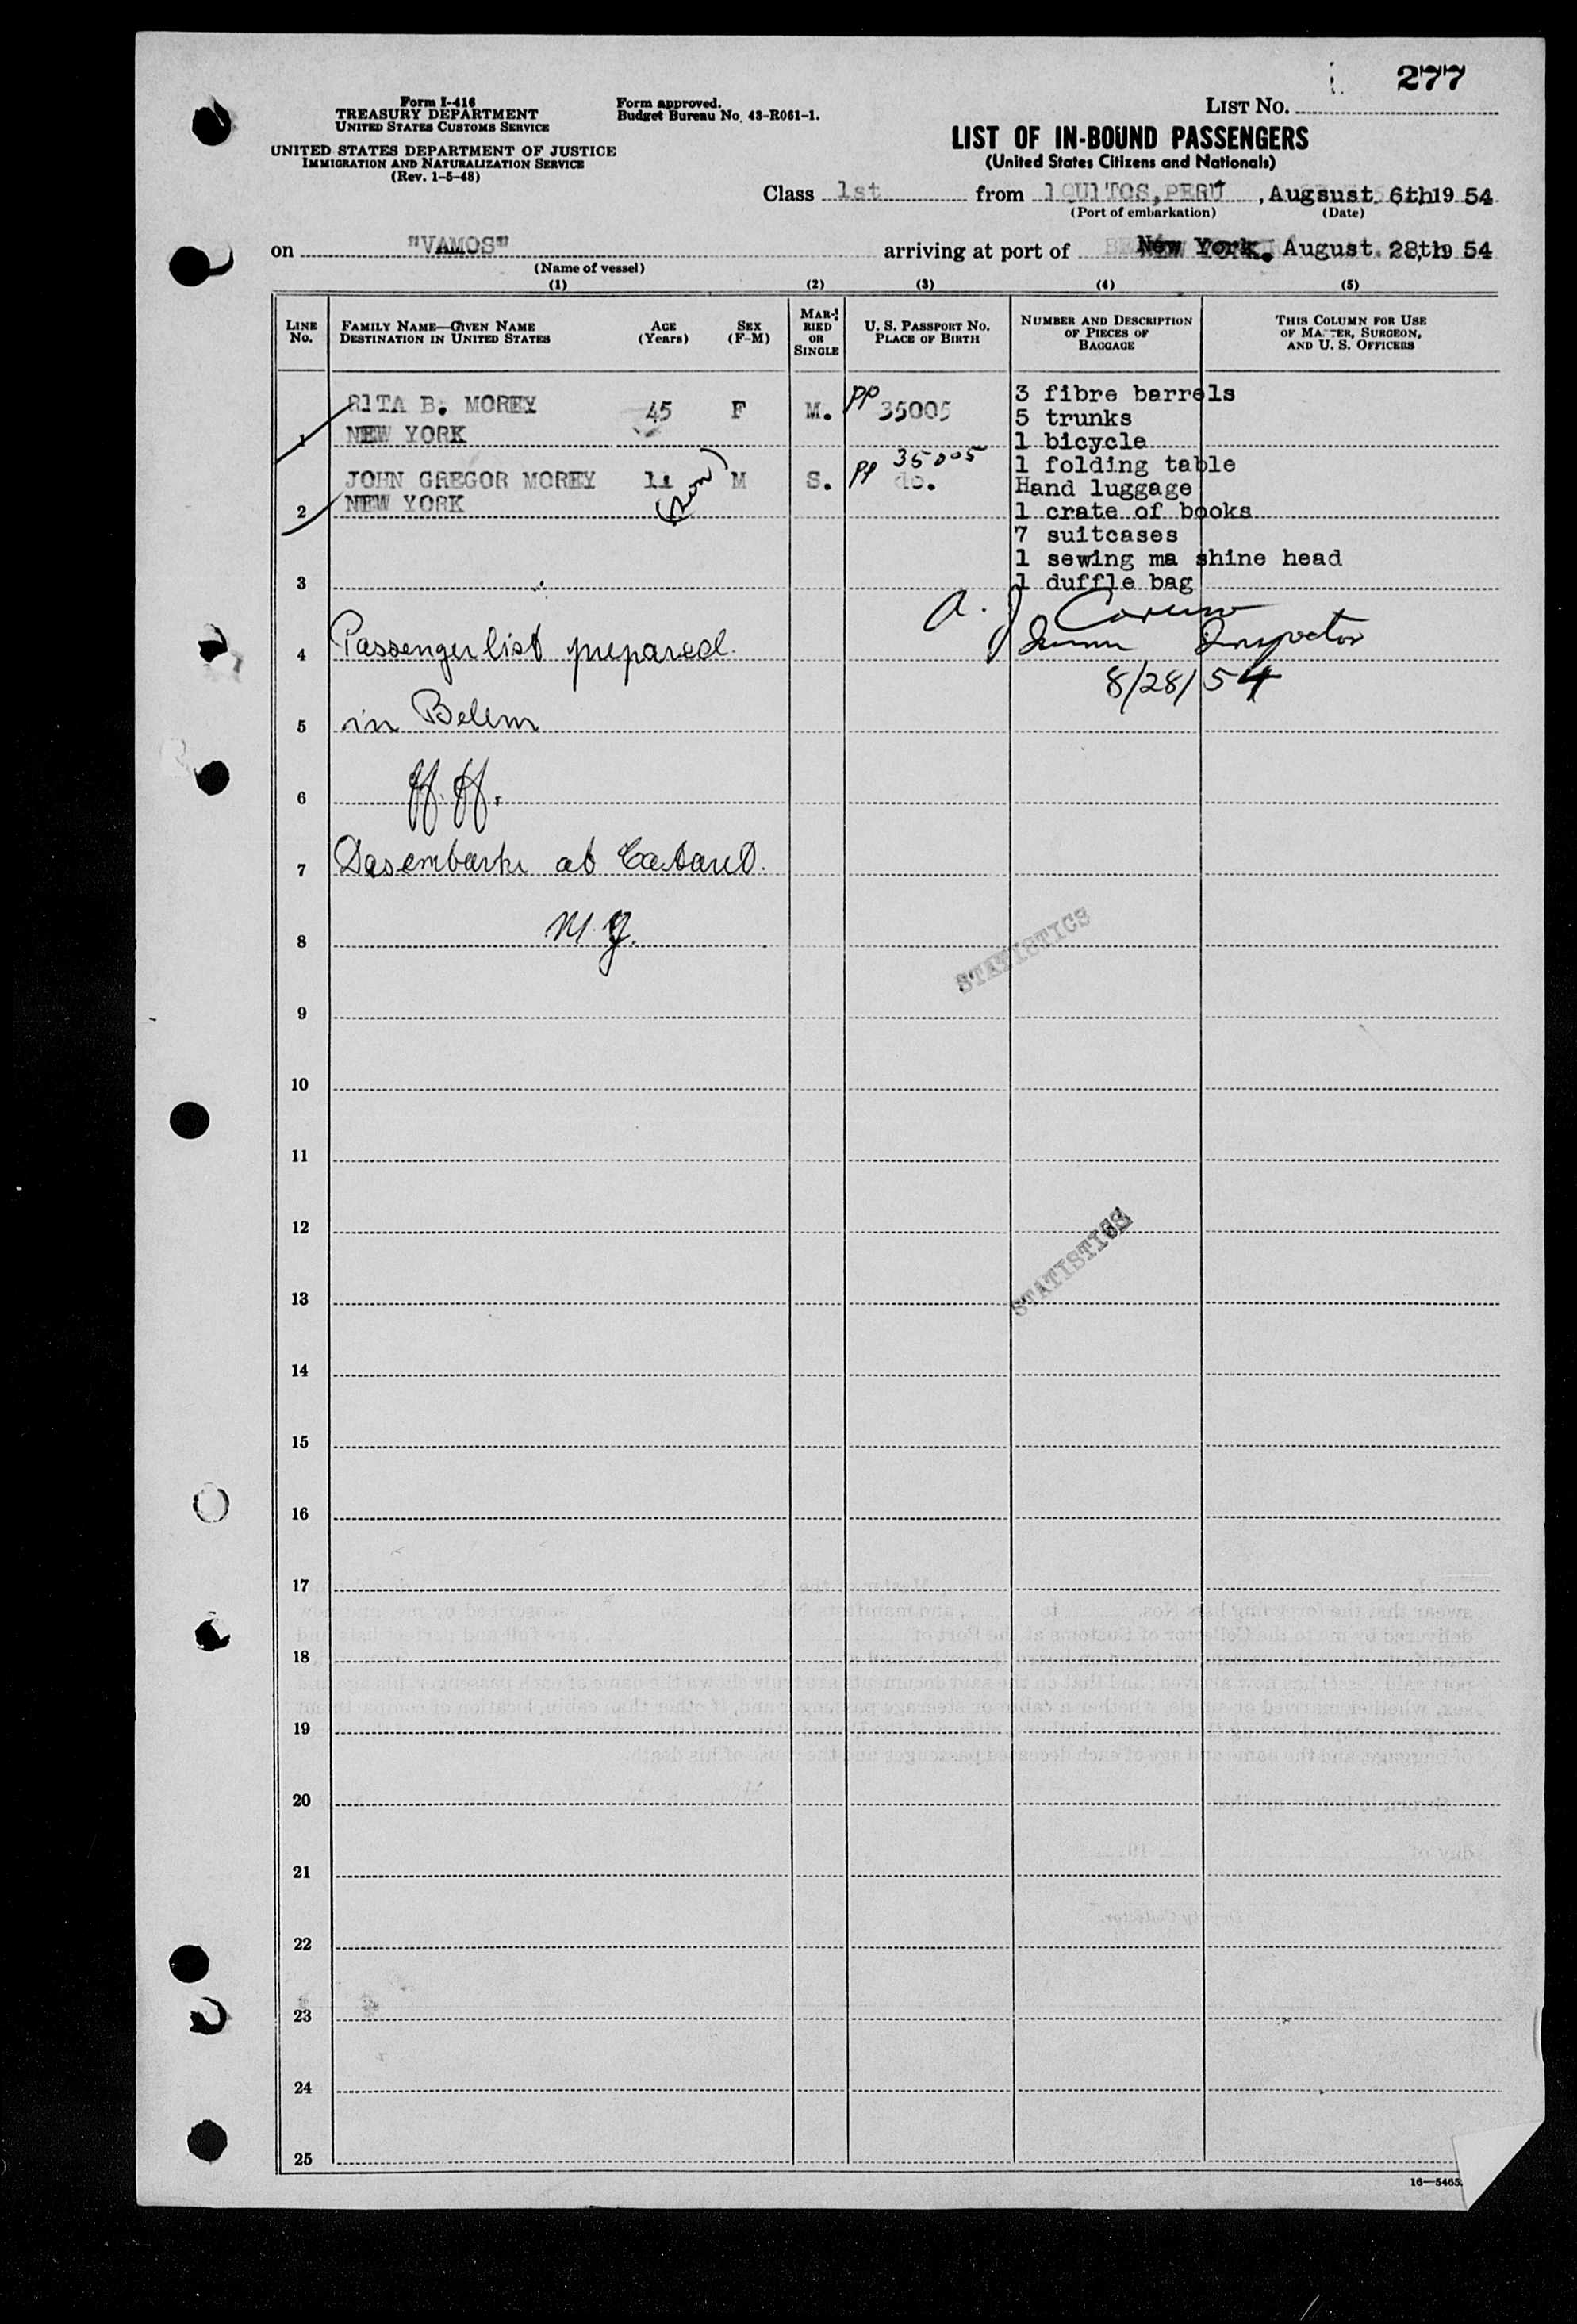 277
Form I-416
TREASURY DEPARTMENT
UNITED STATES CUSTOMS SERVICE
UNITED STATES DEPARTMENT OF JUSTICE
IMMIGRATION AND NATURALIZATION SERVICE
(Rev. 1-5-48)
Form approved.
Budget Bureau No. 43-R061-1.
LIST NO.
LIST OF IN-BOUND PASSENGERS
(United States Citizens and Nationals)
Class 1st from IQUITOS, PERU, Augsust. 6th 19 54
(Port of embarkation) (Date)
on "VAMOS" arriving at port of New York. August. 28th 19 54
(Name of vessel)
(1) (2) (3) (4) (5)
LINE NO.
FAMILY NAME—GIVEN NAME
DESTINATION IN UNITED STATES
AGE (Years)
SEX (F-M)
MARRIED OR SINGLE
U. S. PASSPORT NO.
PLACE OF BIRTH
NUMBER AND DESCRIPTION OF PIECES OF BAGGAGE
THIS COLUMN FOR USE OF MASTER, SURGEON, AND U. S. OFFICERS
1 RITA B. MOREY 45 F M. pp 35005
NEW YORK
2 JOHN GREGOR MOREY 11 (son) M S. pp 35005 do.
NEW YORK
3 fibre barrels
5 trunks
1 bicycle
1 folding table
Hand luggage
1 crate of books
7 suitcases
1 sewing ma shine head
1 duffle bag
3
A. J.
Inspector
8/28/54
4 Passenger list prepared
5 in Belem
6
7 Desembark at
8
STATISTICS
9
10
11
12
STATISTICS
13
14
15
16
17
18
19
20
21
22
23
24
25